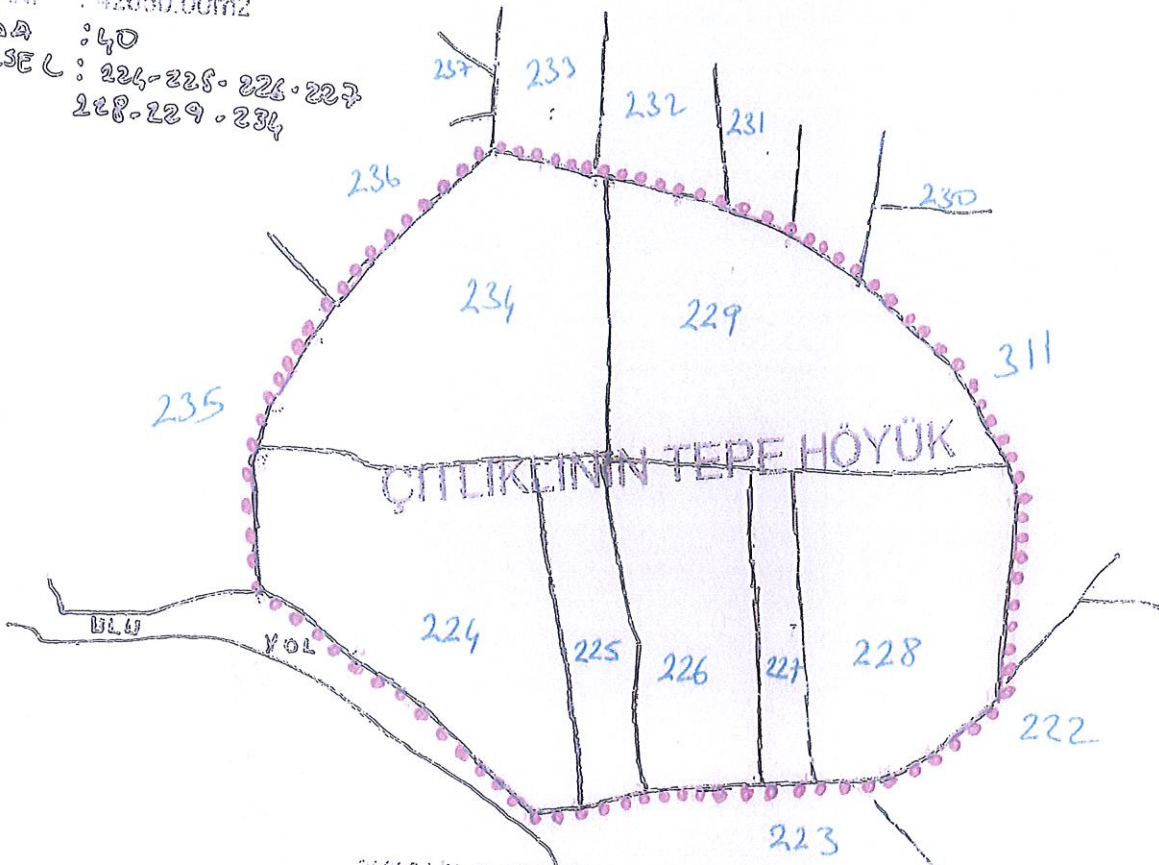 : 42630.00m2
: 40
: 224-225-226-227
228-229-234
237
233
232
231
236
230
234
229
311
235
ÇİTLİKLİNİN TEPE HÖYÜK
ULU
YOL
224
225
226
227
228
222
223